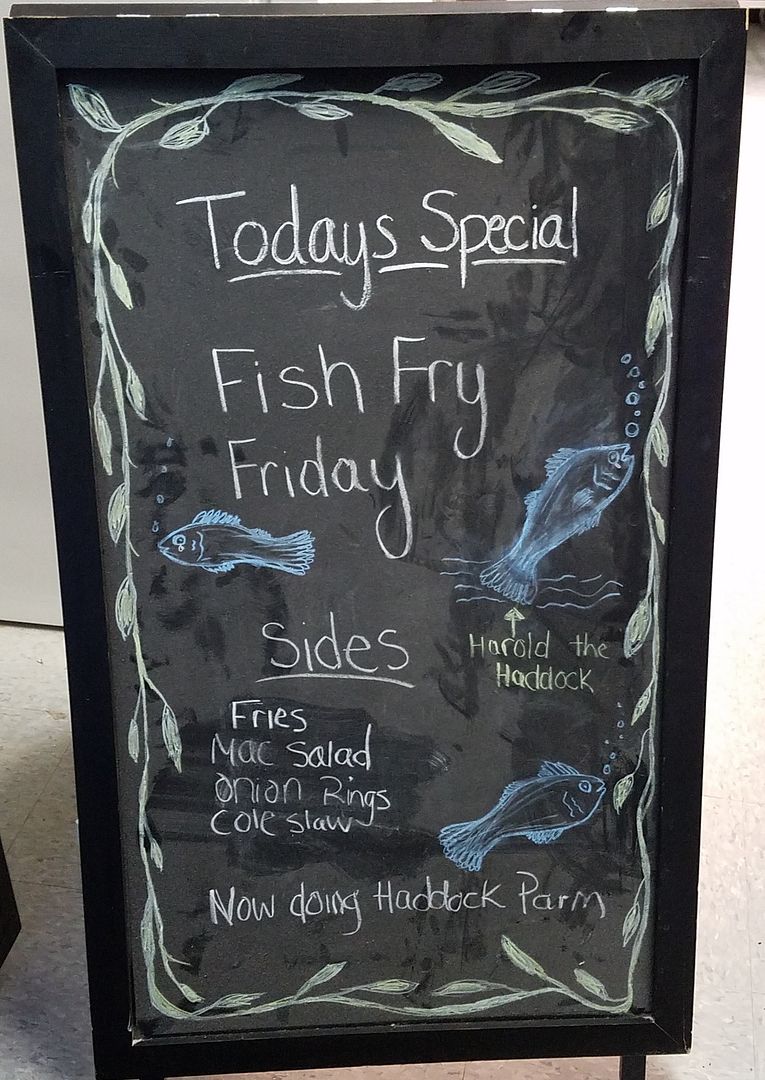 Todays Special
Fish Fry
Friday
Harold the
Haddock
Sides
Fries
Mac Salad
Onion Rings
Cole slaw
Now doing Haddock Parm